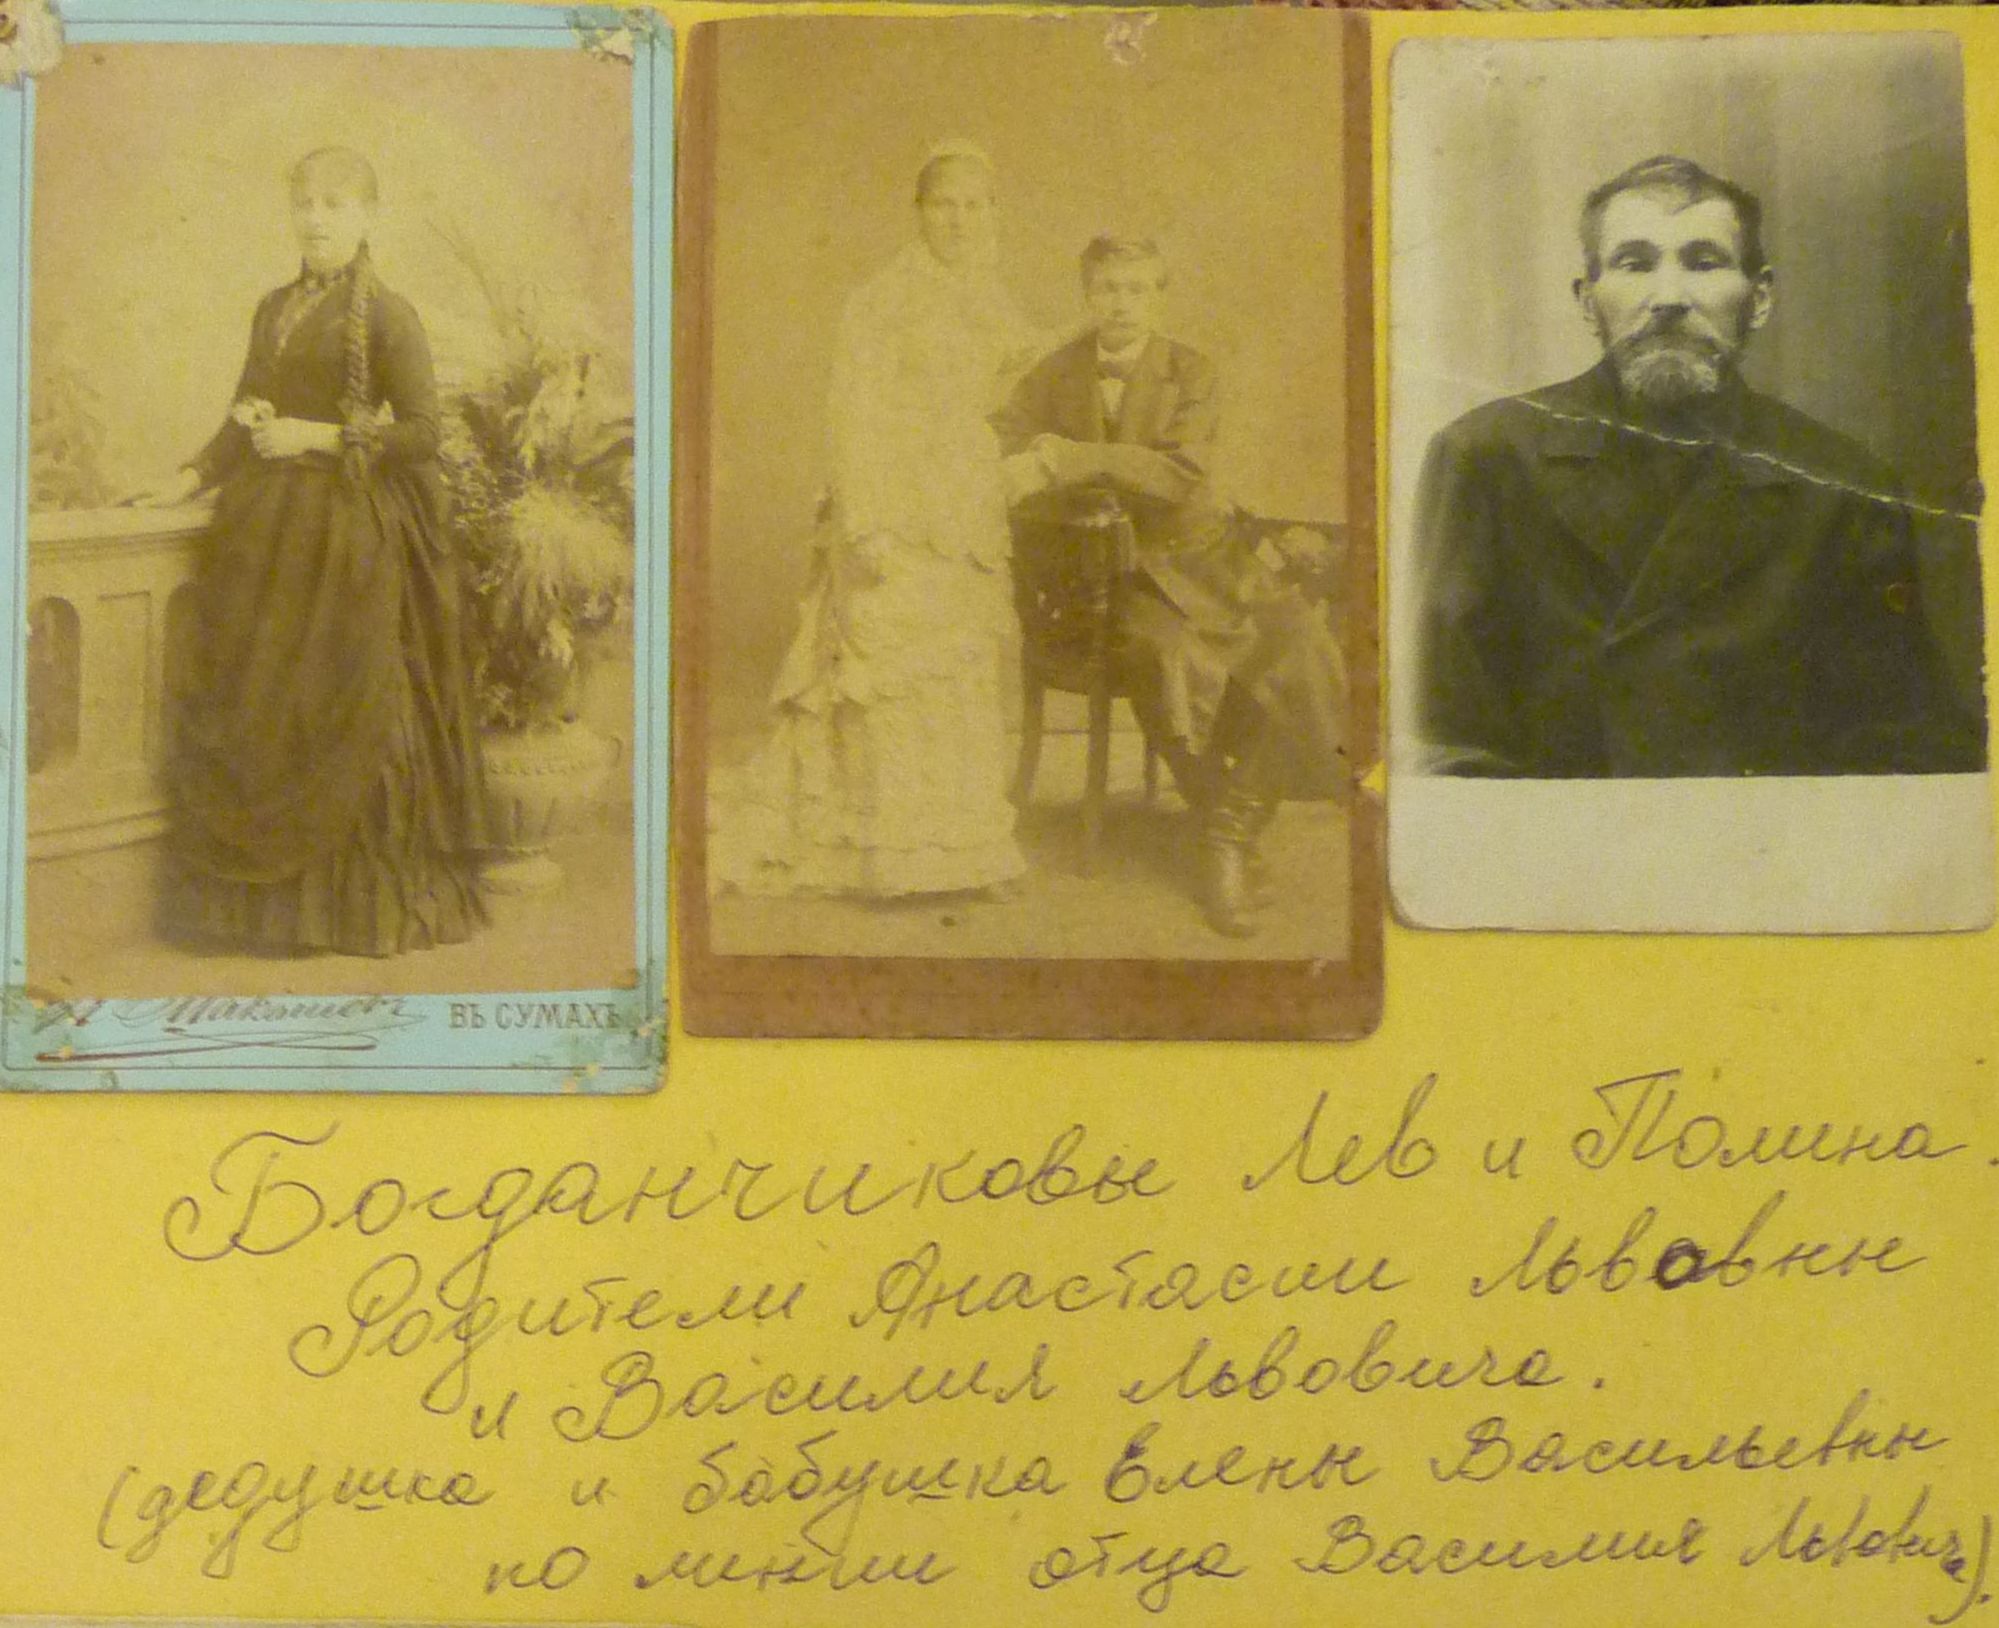 Макашевъ ВЪ СУМАХЪ
Богданчиковы Лев и Полина.
Родители Анастасии Львовны
и Василия Львовича.
(дедушка и бабушка Елены Васильевны
по линии отца Василия Львовича).